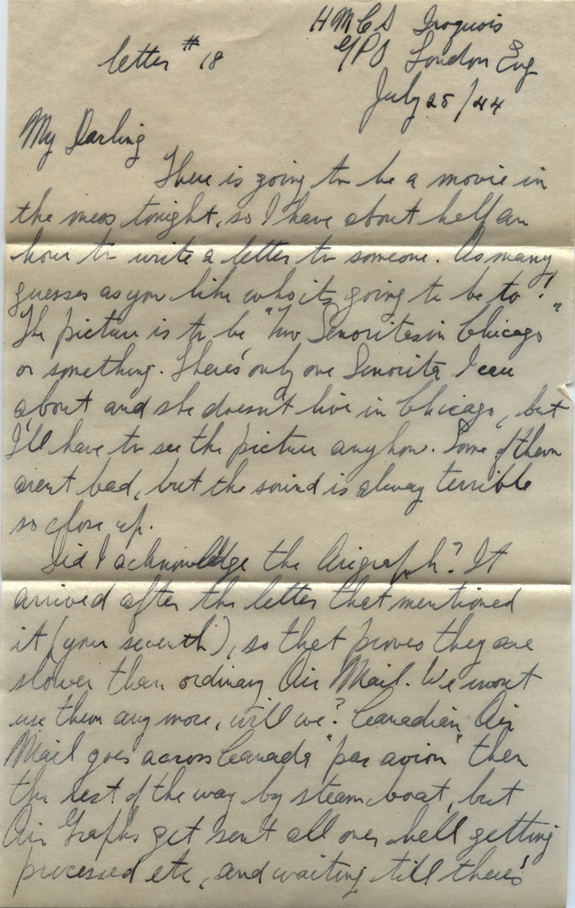 HMCS Iroquois
letter #18
G/PO London Eng
July 25/44
My Darling
There is going to be a movie in
the mess tonight, so I have about half an
hour to write a letter to someone. As many
guesses as you like who its going to be to!
The picture is to be "Two Senoritas in Chicago"
or something. There's only one Senorita I care
about and she doesn't live in Chicago, but
I'll have to see the picture anyhow. Some of them
arent bad, but the sound is alway terrible
so close up.
Did I acknowledge the Airgraph? It
arrived after the letter that mentioned
it (your seventh), so that proves they are
slower than ordinary Air Mail. We wont
use them any more, will we? Canadian Air
Mail goes across Canada "par avion" then
the rest of the way by steam boat, but
Air Graphs get sent all over hell getting
processed etc, and waiting till there's